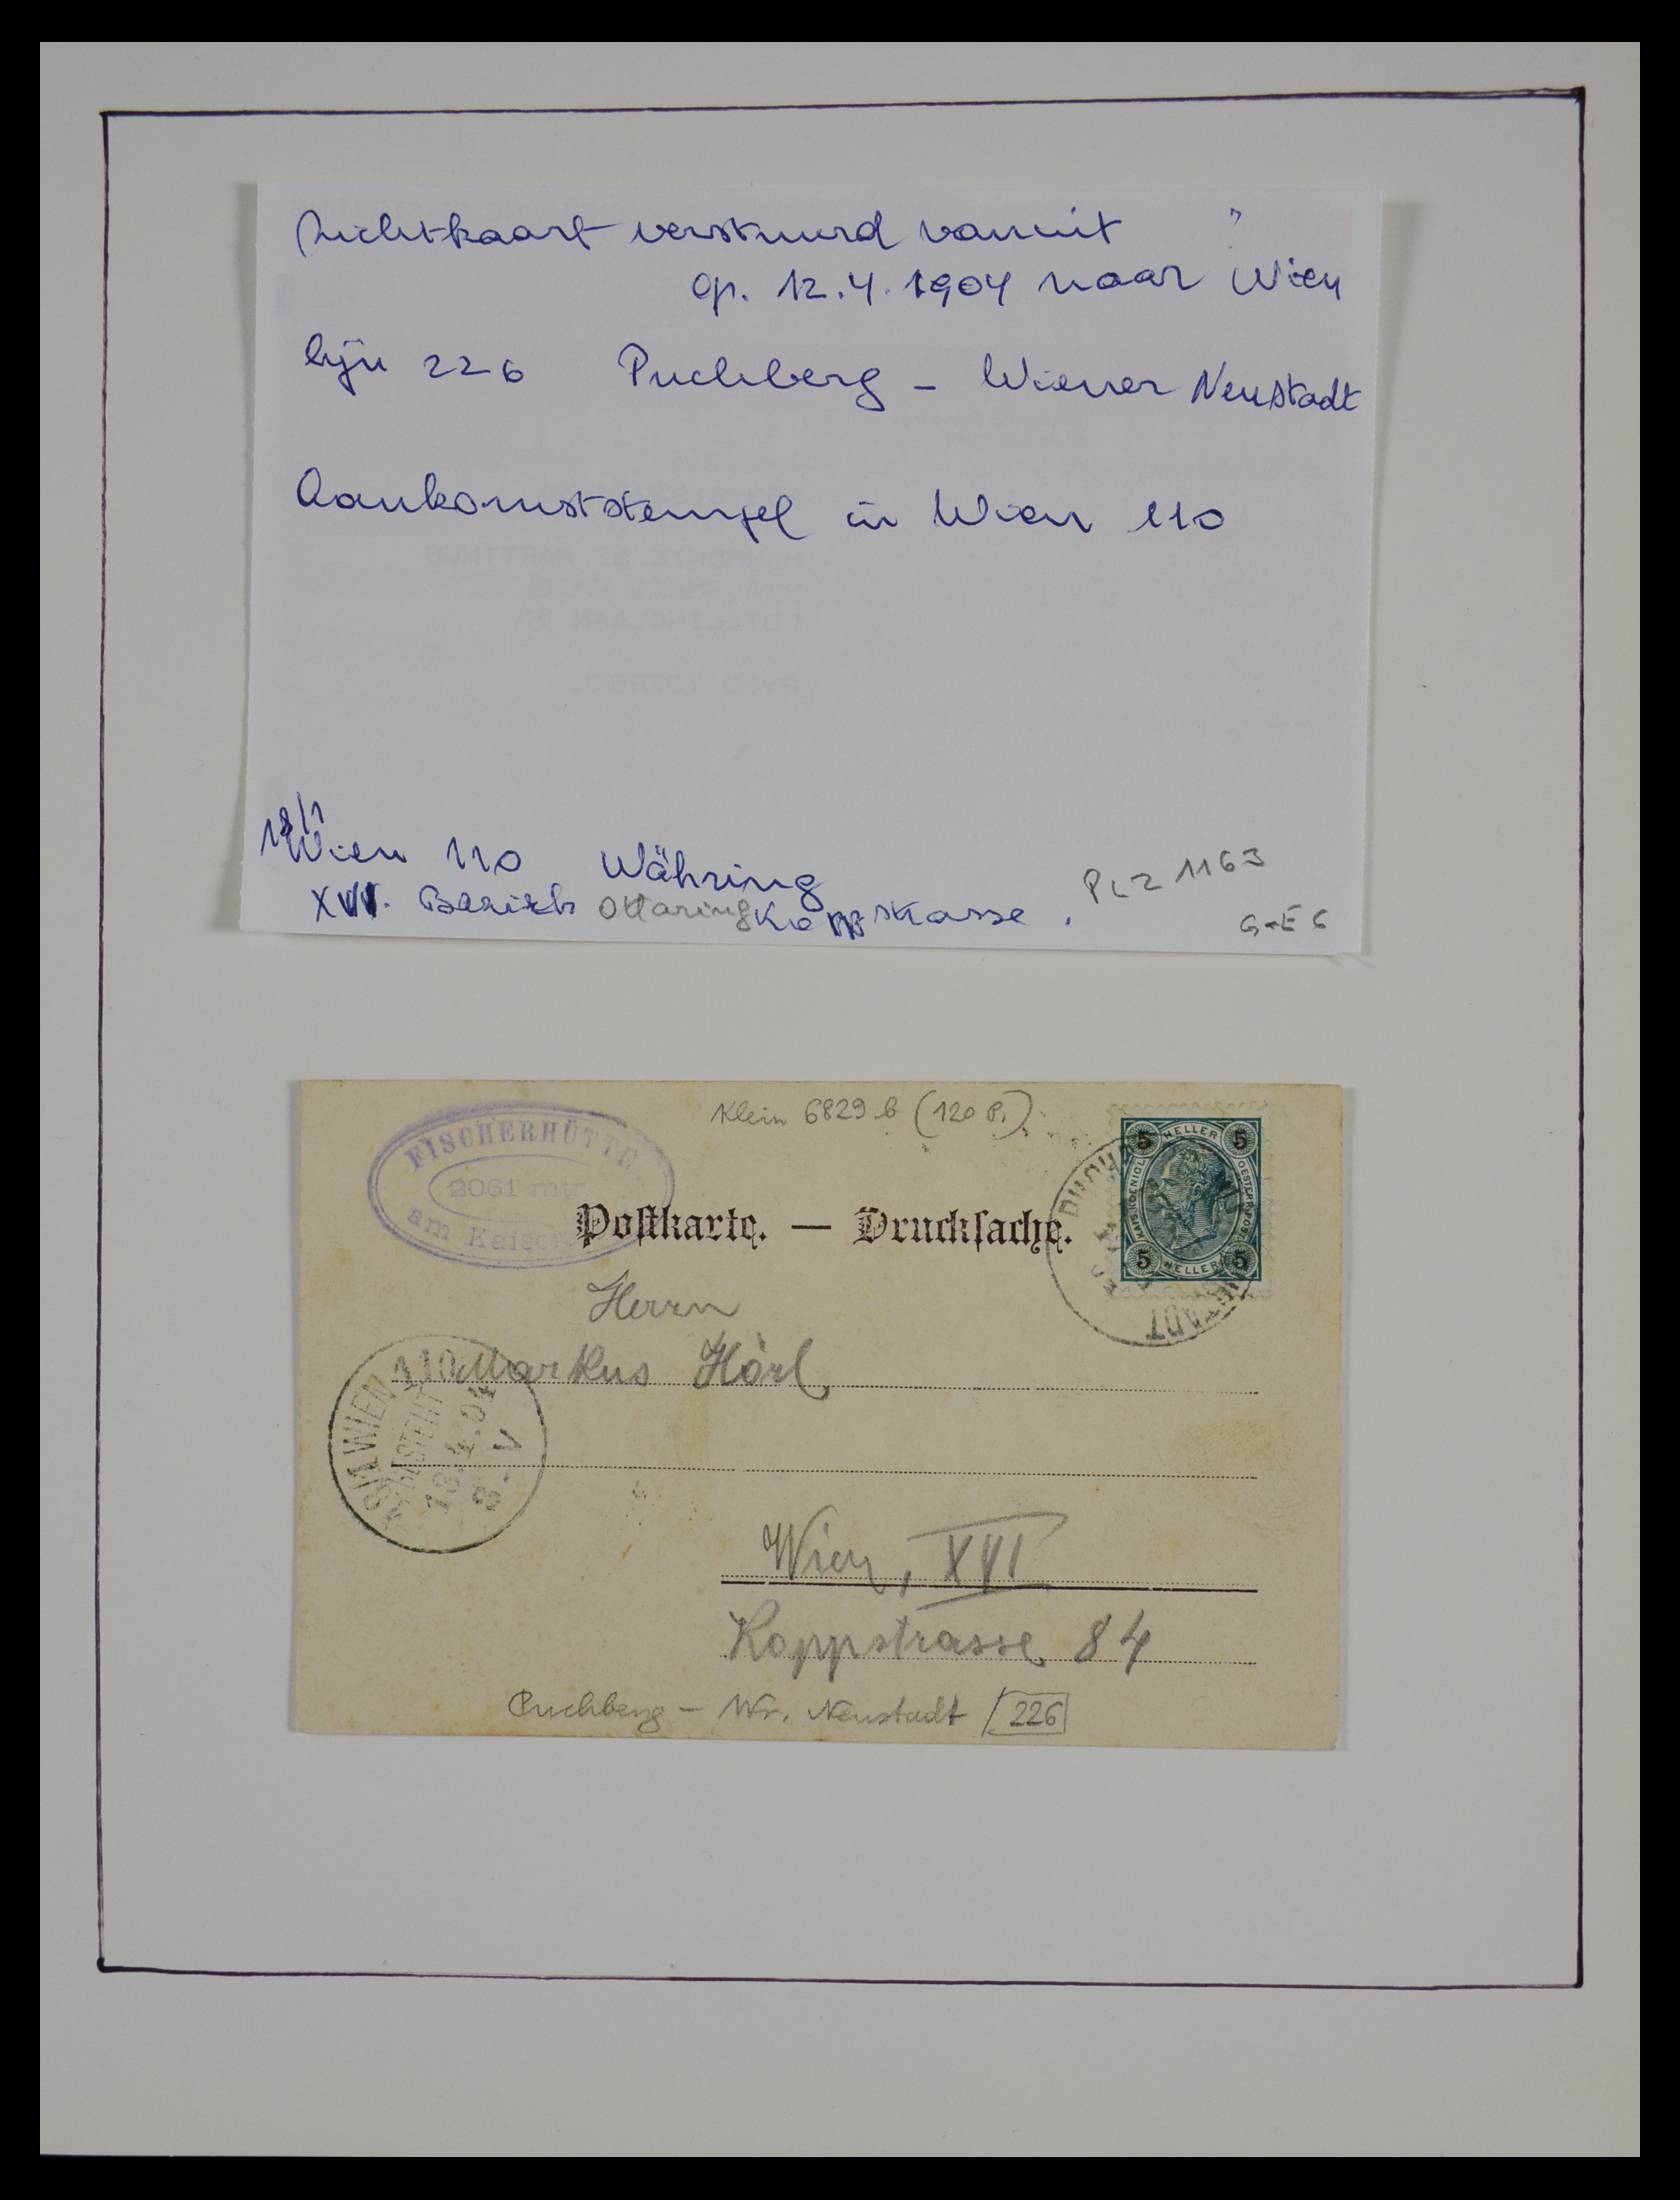 zichtkaart verstuurd vanuit "
op. 12.4.1904 naar Wien
lijn 226 Puchberg - Wiener Neustadt
Aankomststempel in Wien 110
18/1
Wien 110 Währing
XVI. Bezirk Ottaring Koppstrasse.
PLZ 1163
G-E 6
Klein 6829 b (120 P.)
FISCHERHÜTTE
2061 mtr
am Kaiser
Postkarte. — Drucksache.
5 HELLER 5
5 HELLER 5
Herrn
Markus Hörl
18/1 WIEN 110
BESTELLT
13.4.04
8.V
Wien, XVI
Koppstrasse 84
Puchberg - Wr. Neustadt 226